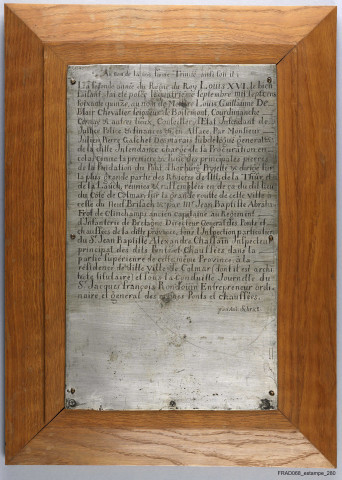 Au nom de la très sainte Trinité ainsi soit il :
La seconde année du Règne du Roy LOUIS XVI. le bien
faisant, fut été posée le quatrième Septembre mil sept cens
soixante quinze, au nom de Louis Guillaume De
Blair Chevalier Seigneur de Boisemont, Courdimanche
Cernay & autres lieux, Conseiller d'Etat, Intendant de
Justice Police & finances &c. en Alsace, Par Monsieur
Julien Pierre Gatchet Desmarais subdélégué général
de la ditte Intendance chargé de la Procuration en
cet endroit comme la première
de la fondation du Pont
la plus grande partie des Rivières de l'Ill, de la Thur et
de la Lauch, réunies & rassemblées en deça du dit lieu
du Côté de Colmar sur la grande route de cette Ville à
celle du Neuf Brisach &c. par Mr. Jean Baptiste Abrah
Frol de Clinchamps ancien capitaine au Régiment
d'Infanterie de Directeur Général des Ponts et
chaussées de la ditte province, sous l'Inspection particulière
du Sr. Jean Baptiste Alexandre Chassain Inspecteur
principal des dits Ponts et Chaussées dans la
partie Supérieure de cette même Province, à la
résidence de ditte Ville de Colmar (dont il est archi
tecte titulaire) et sous la Conduitte Journelle de
Sr. Jacques François Entrepreneur ordi
naire et général des mêmes Ponts et chaussées.
FRAD068_estampe_260